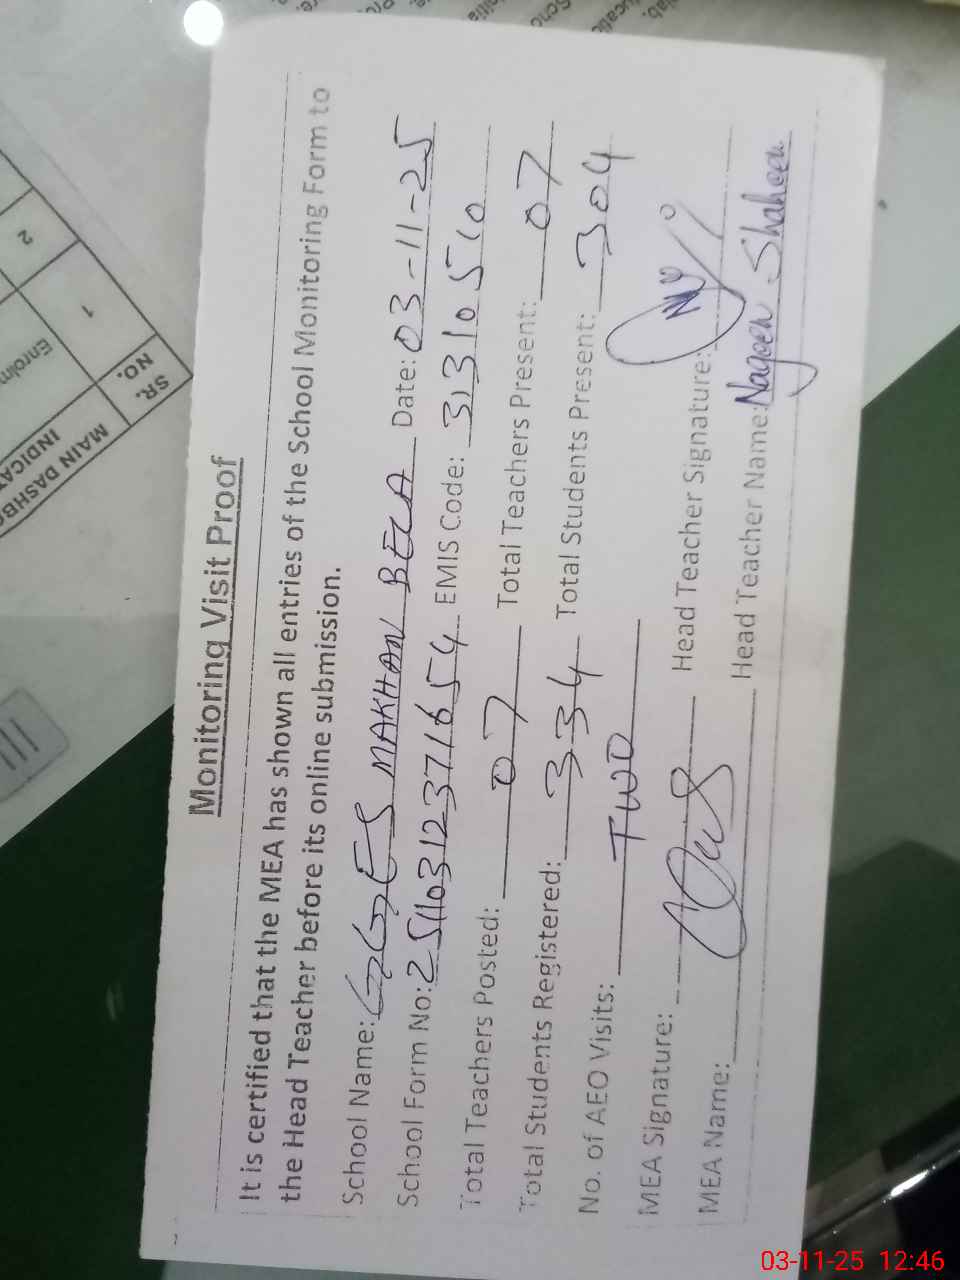 Monitoring Visit Proof
It is certified that the MEA has shown all entries of the School Monitoring Form to
the Head Teacher before its online submission.
School Name: GGES MAKHAN BELA Date: 03-11-25
School Form No: 25110312371654 EMIS Code: 31310510
Total Teachers Posted: 07 Total Teachers Present: 07
Total Students Registered: 334 Total Students Present: 304
No. of AEO Visits: TWO
MEA Signature: Head Teacher Signature:
MEA Name: Head Teacher Name: Nageen Shaheen
SR.
NO.
MAIN DASHBO
INDICAT
1
2
Enrolm
03-11-25 12:46